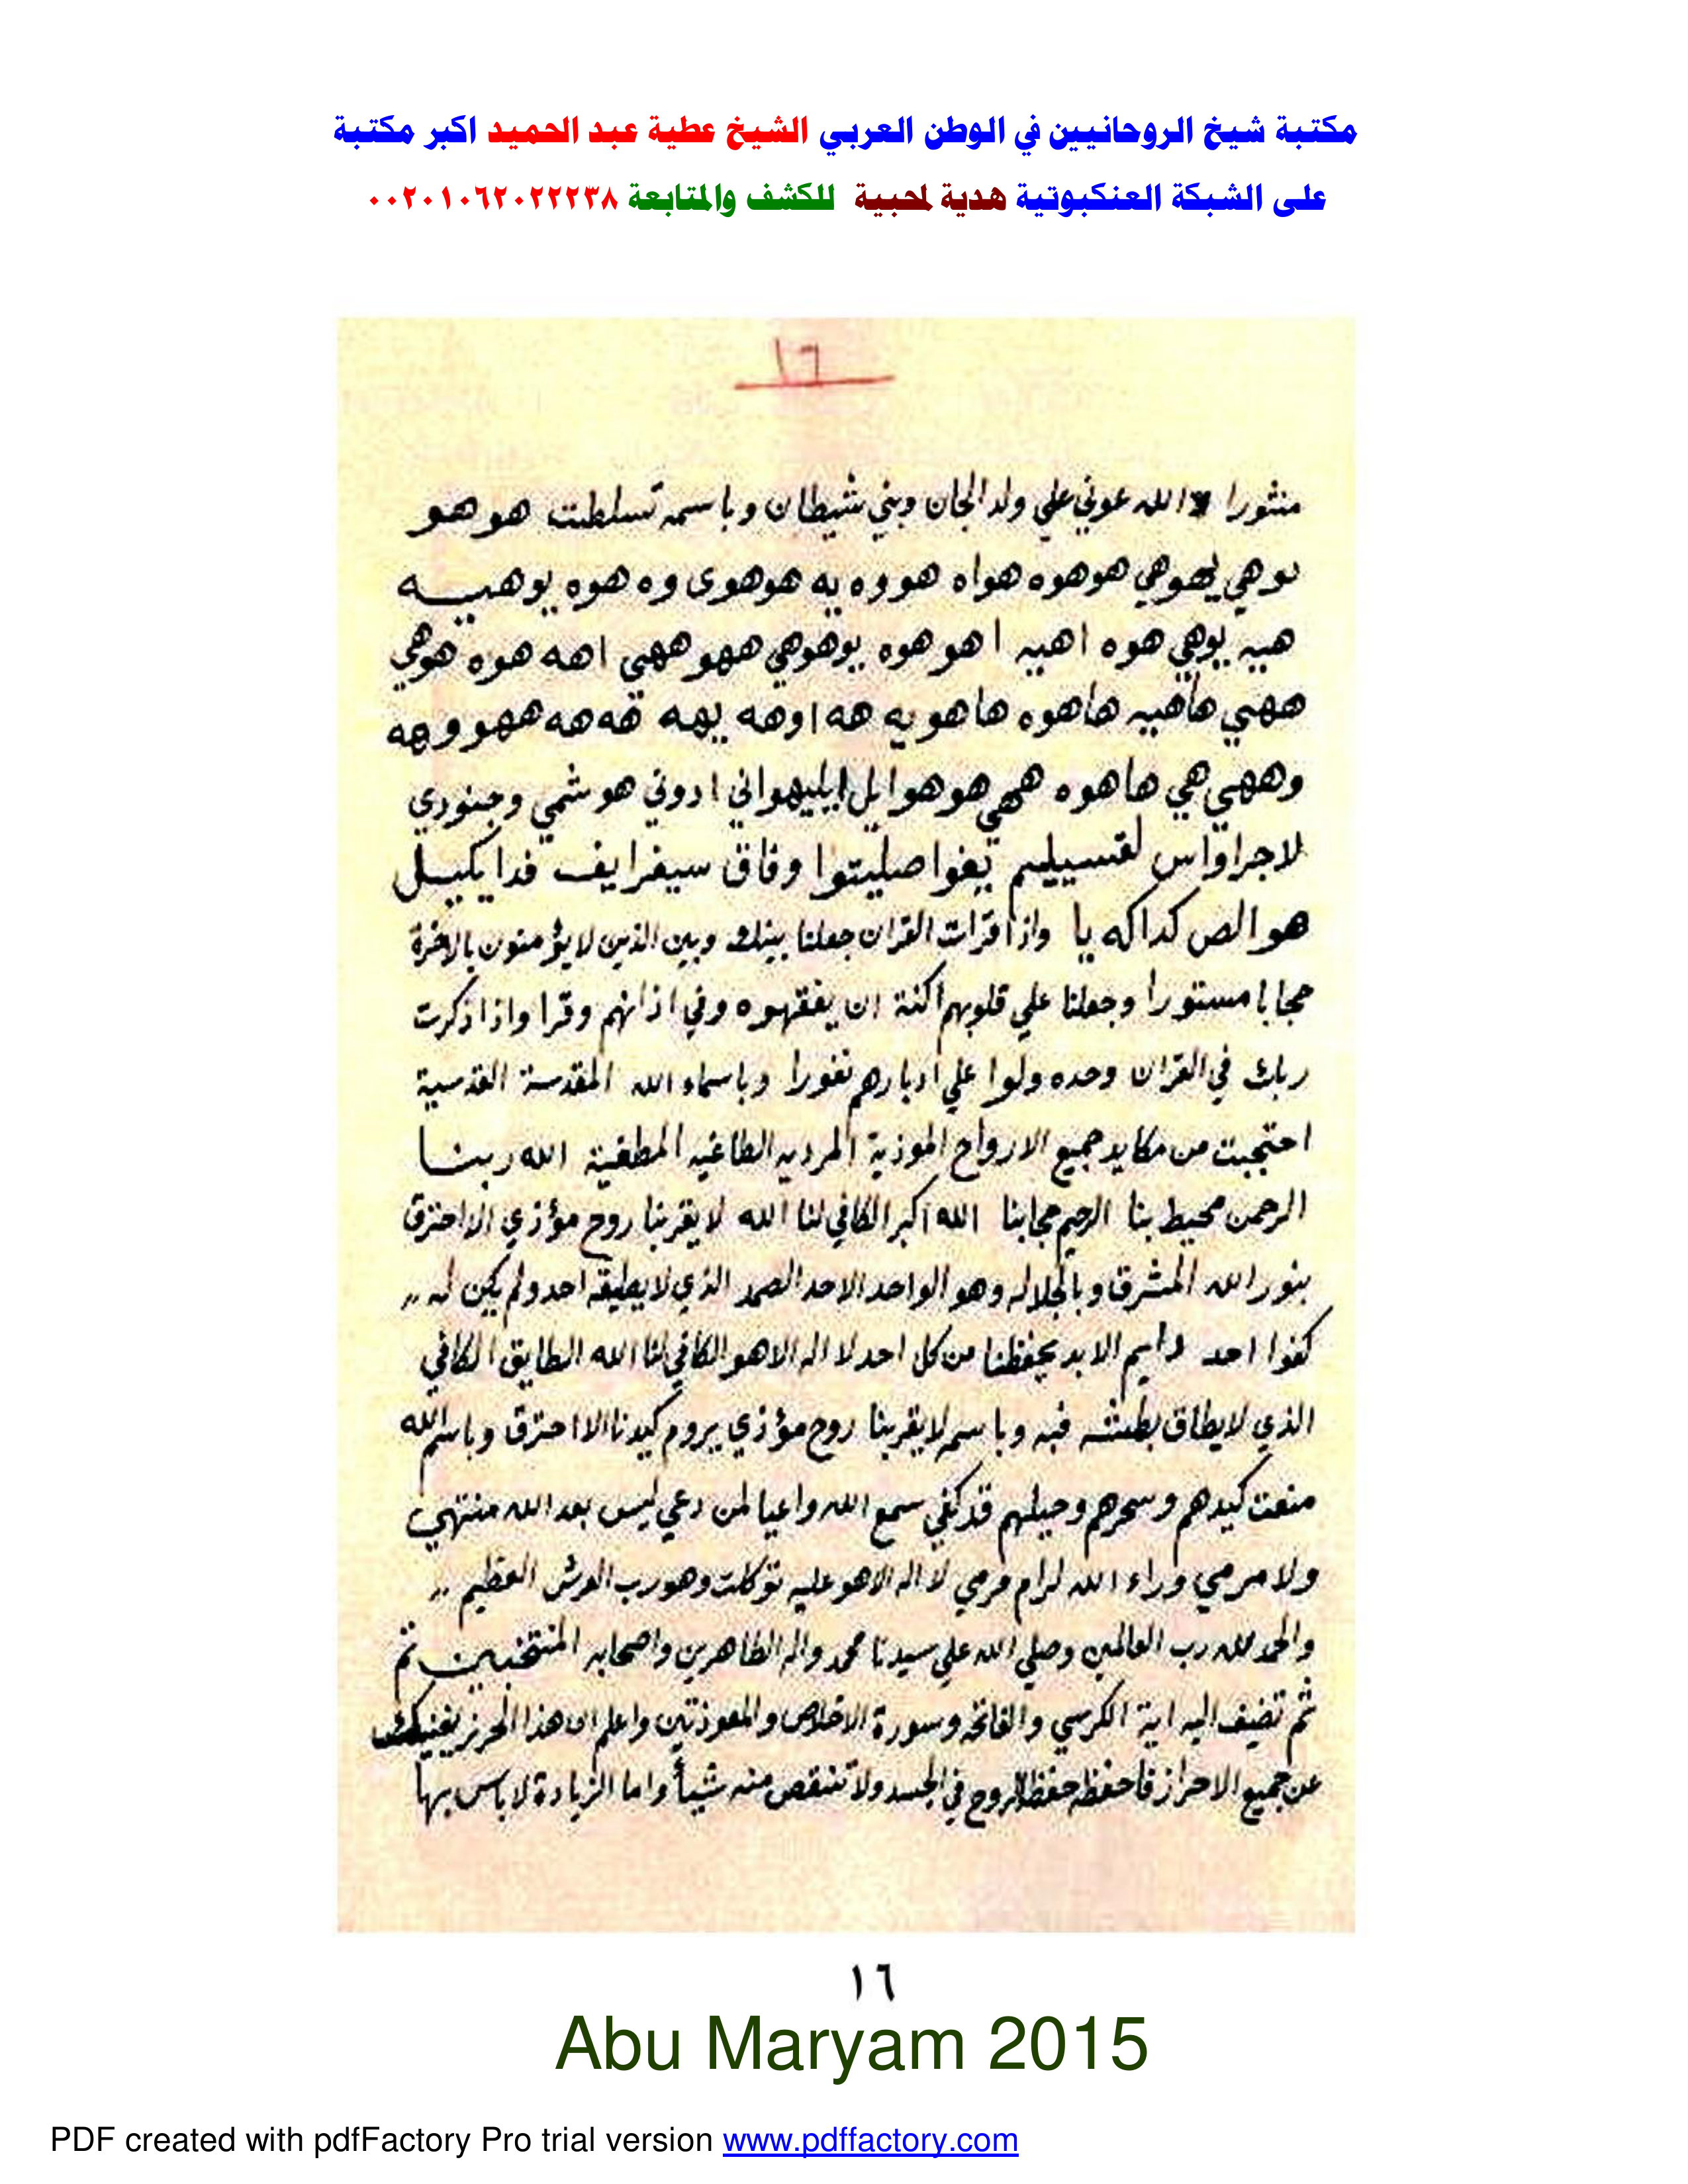 مكتبة شيخ الروحانيين في الوطن العربي الشيخ عطية عبد الحميد اكبر مكتبة
على الشبكة العنكبوتية هدية لمحبية للكشف والمتابعة ٠٠٢٠١٠٦٢٠٢٢٢٣٨
١٦
منثورا الله عوني علي ولد الجان وبني شيطان وباسمه تسلطت هو هو
هوهوه هواه هووه يه هوهوى وه هوه يوهيه
هيه يوهي هوه اهيه اهو هوه يوهوهي ههو ههي اهه هوه هوهي
ههي هاهيه هاهوه هاهو يه هه اوهه يهه قه هه ههو وهه
وههي هي هاهوه ههي هو هوا يل ايليهواني ادوني هو شمي وجنودي
لاجراواس لقسييليم يغوا صليتوا وفاق سيفرايف فدايكييل
هو الص كداكه يا واذا قرات القران جعلنا بينك وبين الذين لا يؤمنون بالاخرة
حجابا مستورا وجعلنا علي قلوبهم اكنة ان يفقهوه وفي اذانهم وقرا واذا ذكرت
ربك في القران وحده ولوا علي ادبارهم نفورا وباسماء الله المقدسة القدسية
احتجبت من مكايد جميع الارواح الموذية المرديه الطاغيه المطغية الله ربنا
الرحمن محيط بنا الرحيم حجابنا الله اكبر الكافي لنا الله لا يقربنا روح مؤذي الا احترق
بنور الله المشرق وبالجلاله وهو الواحد الاحد الصمد الذي لا يطيقه احد ولم يكن له ,,
كفوا احد دايم الابد يحفظنا من كل احد لا اله الا هو الكافي لنا الله الطايق الكافي
الذي لا يطاق بطشه فبه وباسمه لا يقربنا روح مؤذي يروم كيدنا الا احترق وباسم الله
منعت كيدهم وسحرهم وحيلهم قد كفي سمع الله واعيا لمن دعي ليس بعد الله منتهي
ولا مرمي وراء الله لرام مرمي لا اله الا هو عليه توكلت وهو رب العرش العظيم ,,
والحمد لله رب العالمين وصلي الله علي سيدنا محمد واله الطاهرين واصحابه المنتخبين ثم
ثم تضيف اليه اية الكرسي والفاتحه وسورة الاخلاص والمعوذتين واعلم ان هذا الحرز يغنيك
عن جميع الاحراز فاحفظه حفظ الروح في الجسد ولا تنقص منه شيأ واما الزيادة لا باس بها
١٦
Abu Maryam 2015
PDF created with pdfFactory Pro trial version www.pdffactory.com